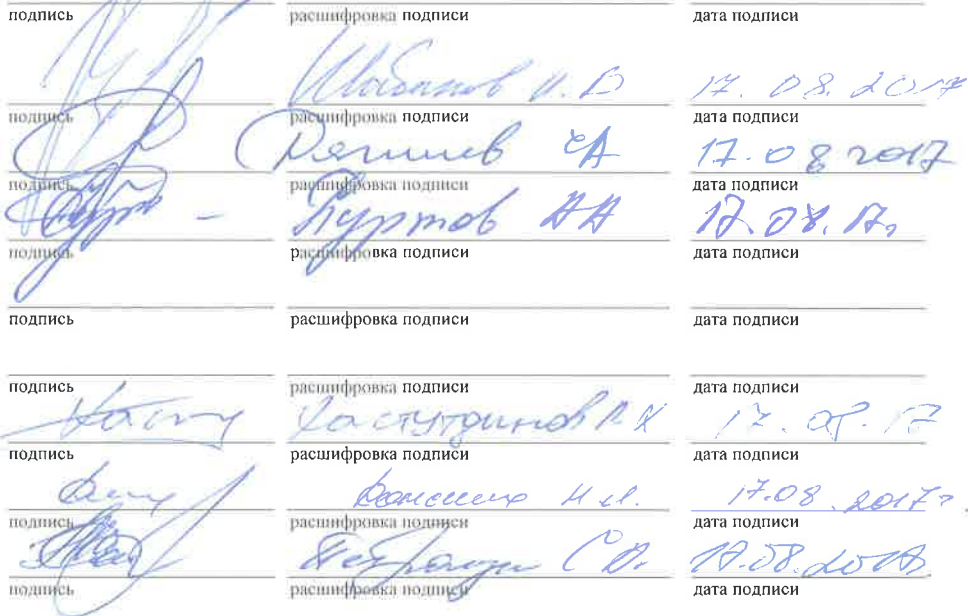 подпись расшифровка подписи дата подписи
Шабанов И. В 17. 08. 2017
подпись расшифровка подписи дата подписи
17.08 2017
подпись расшифровка подписи дата подписи
Куртов АН 17.08.17г
подпись расшифровка подписи дата подписи
подпись расшифровка подписи дата подписи
подпись расшифровка подписи дата подписи
Хастутдинов Р. Х 17. 08. 17
подпись расшифровка подписи дата подписи
17.08 2017г.
подпись расшифровка подписи дата подписи
17.08.2017
подпись расшифровка подписи дата подписи